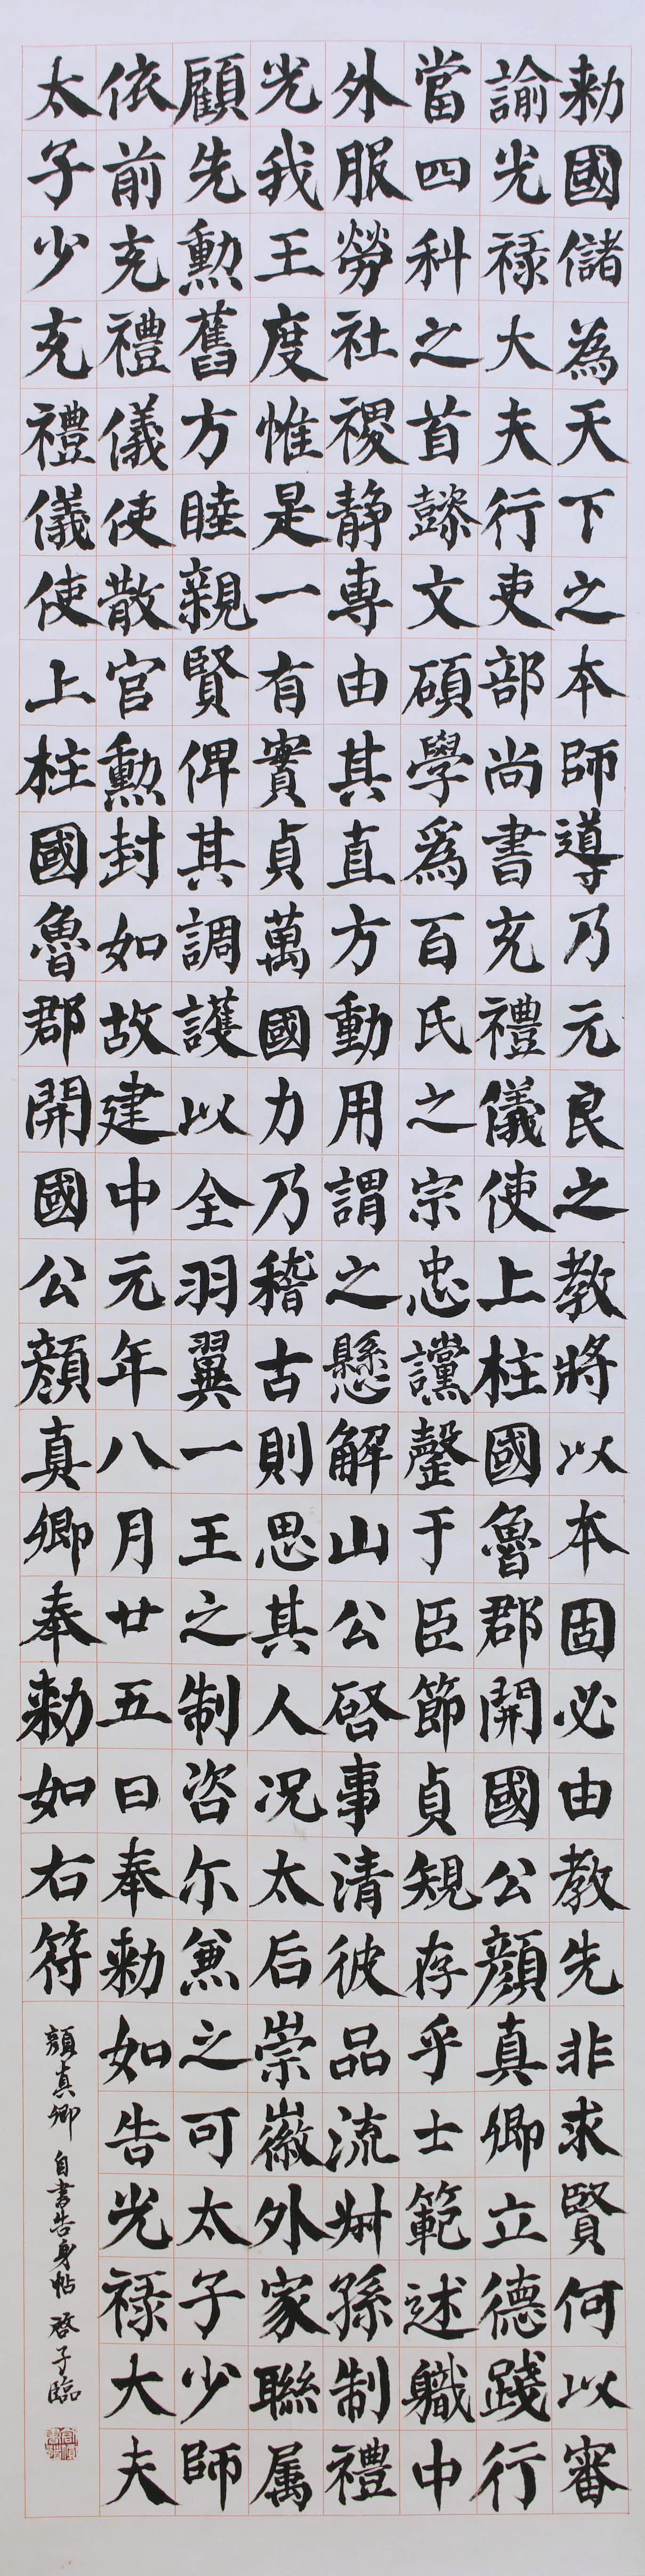 勅國儲為天下之本師導乃元良之教將以本固必由教先非求賢何以審
諭光祿大夫行吏部尚書充禮儀使上柱國魯郡開國公顏真卿立德踐行
當四科之首懿文碩學爲百氏之宗忠讜罄于臣節貞規存乎士範述職中
外服勞社稷静專由其直方動用謂之懸解山公啓事清彼品流叔孫制禮
光我王度惟是一有實貞萬國力乃稽古則思其人况太后崇徽外家聯属
顧先勳舊方睦親賢俾其調護以全羽翼一王之制咨尔兼之可太子少師
依前充禮儀使散官勳封如故建中元年八月廿五日奉勅如告光祿大夫
太子少充禮儀使上柱國魯郡開國公顏真卿奉勅如右符
顏真卿自書告身帖 啓子臨